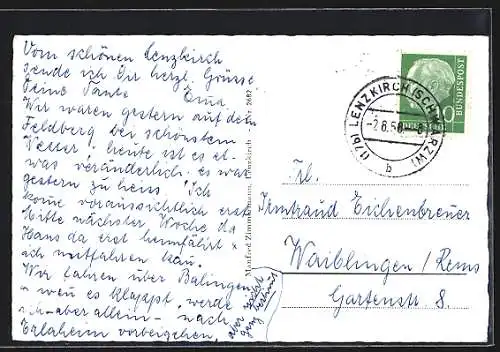 Vom schönen Lenzkirch
sende ich Dir herzl. Grüsse
Deine Tante Erna
Wir waren gestern auf dem
Feldberg bei schönstem
Wetter, heute ist es et-
was veränderlich. es war
gestern zu heiss. Ich
kome voraussichtlich erst
Mitte nächster Woche da
Hans da erst heimfährt +
ich mitfahren kan.
Wir fahren über Balingen
+ wen es klappt, werde
ich - aber allein - nach
vorbeigehen.
aber
ganz
Manfred Zimmermann, Lenzkirch
2682
(17b) LENZKIRCH (SCHWARZW)
-2.6.56
b
DEUTSCHE BUNDESPOST
10
Frl.
Irmtraud Eichenbreuer
Waiblingen / Rems
Gartenstr. 8.